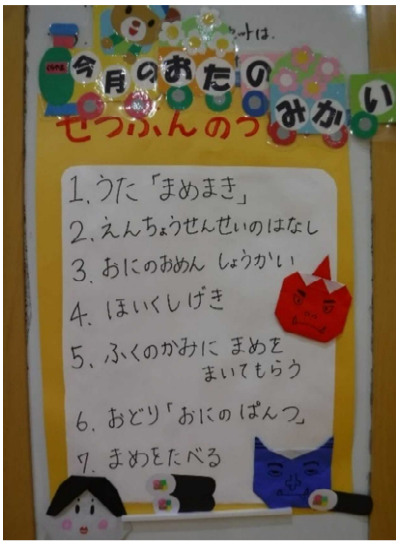 ットは、
今月のおたの
みかい
せつぶんのつ
1. うた「まめまき」
2. えんちょうせんせいのはなし
3. おにのおめん しょうかい
4. ほいくしげき
5. ふくのかみに まめを
まいてもらう
6. おどり「おにのぱんつ」
7. まめをたべる